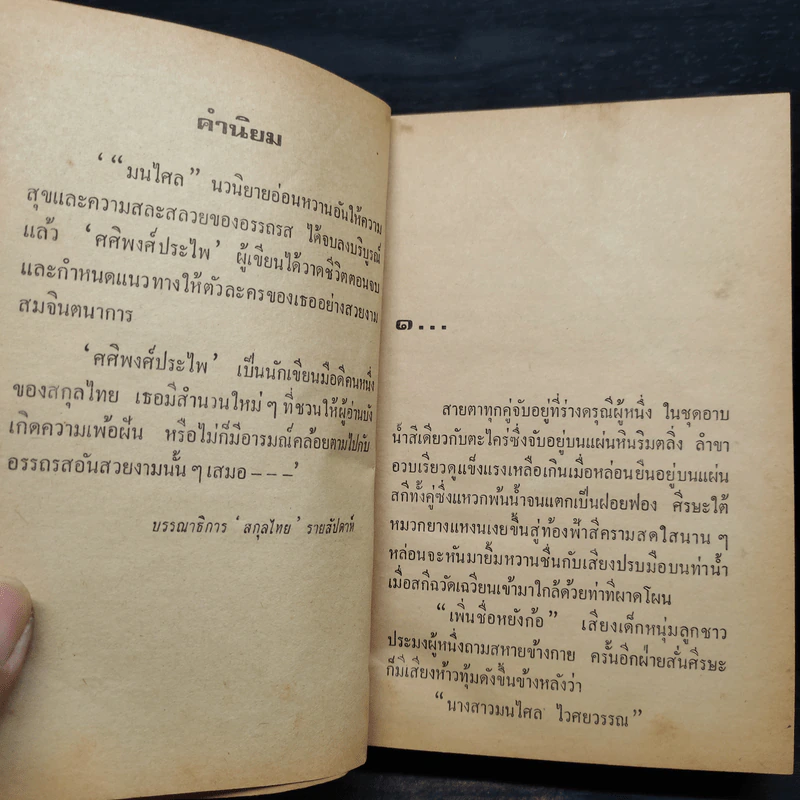 คำนิยม
‘ “มนไศล” นวนิยายอ่อนหวานอันให้ความ
สุขและความสละสลวยของอรรถรส ได้จบลงบริบูรณ์
แล้ว ‘ศศิพงศ์ประไพ’ ผู้เขียนได้วาดชีวิตตอนจบ
และกำหนดแนวทางให้ตัวละครของเธออย่างสวยงาม
สมจินตนาการ
‘ศศิพงศ์ประไพ’ เป็นนักเขียนมือดีคนหนึ่ง
ของสกุลไทย เธอมีสำนวนใหม่ ๆ ที่ชวนให้ผู้อ่านบัง
เกิดความเพ้อฝัน หรือไม่ก็มีอารมณ์คล้อยตามไปกับ
อรรถรสอันสวยงามนั้น ๆ เสมอ – – –’
บรรณาธิการ ‘สกุลไทย’ รายสัปดาห์
๑...
สายตาทุกคู่จับอยู่ที่ร่างดรุณีผู้หนึ่ง ในชุดอาบ
น้ำสีเดียวกับตะไคร่ซึ่งจับอยู่บนแผ่นหินริมตลิ่ง ลำขา
อวบเรียวดูแข็งแรงเหลือเกินเมื่อหล่อนยืนอยู่บนแผ่น
สกีทั้งคู่ซึ่งแหวกพ้นน้ำจนแตกเป็นฝอยฟอง ศีรษะใต้
หมวกยางแหงนเงยขึ้นสู่ท้องฟ้าสีครามสดใสนาน ๆ
หล่อนจะหันมายิ้มหวานชื่นกับเสียงปรบมือบนท่าน้ำ
เมื่อสกีฉวัดเฉวียนเข้ามาใกล้ด้วยท่าที่ผาดโผน
“เพิ่นชื่อหยังก้อ” เสียงเด็กหนุ่มลูกชาว
ประมงผู้หนึ่งถามสหายข้างกาย ครั้นอีกฝ่ายสั่นศีรษะ
ก็มีเสียงห้าวทุ้มดังขึ้นข้างหลังว่า
“นางสาวมนไศล ไวศยวรรณ”